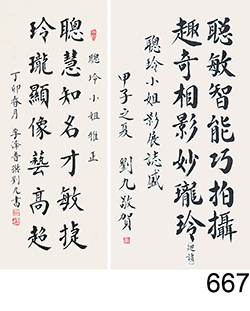 聰敏智能巧拍攝
趣奇相影妙瓏玲
聰玲小姐影展誌盛
甲子之夏 劉九敬賀
聰玲小姐雅正
聰慧知名才敏捷
玲瓏顯像藝高超
丁卯春月
667